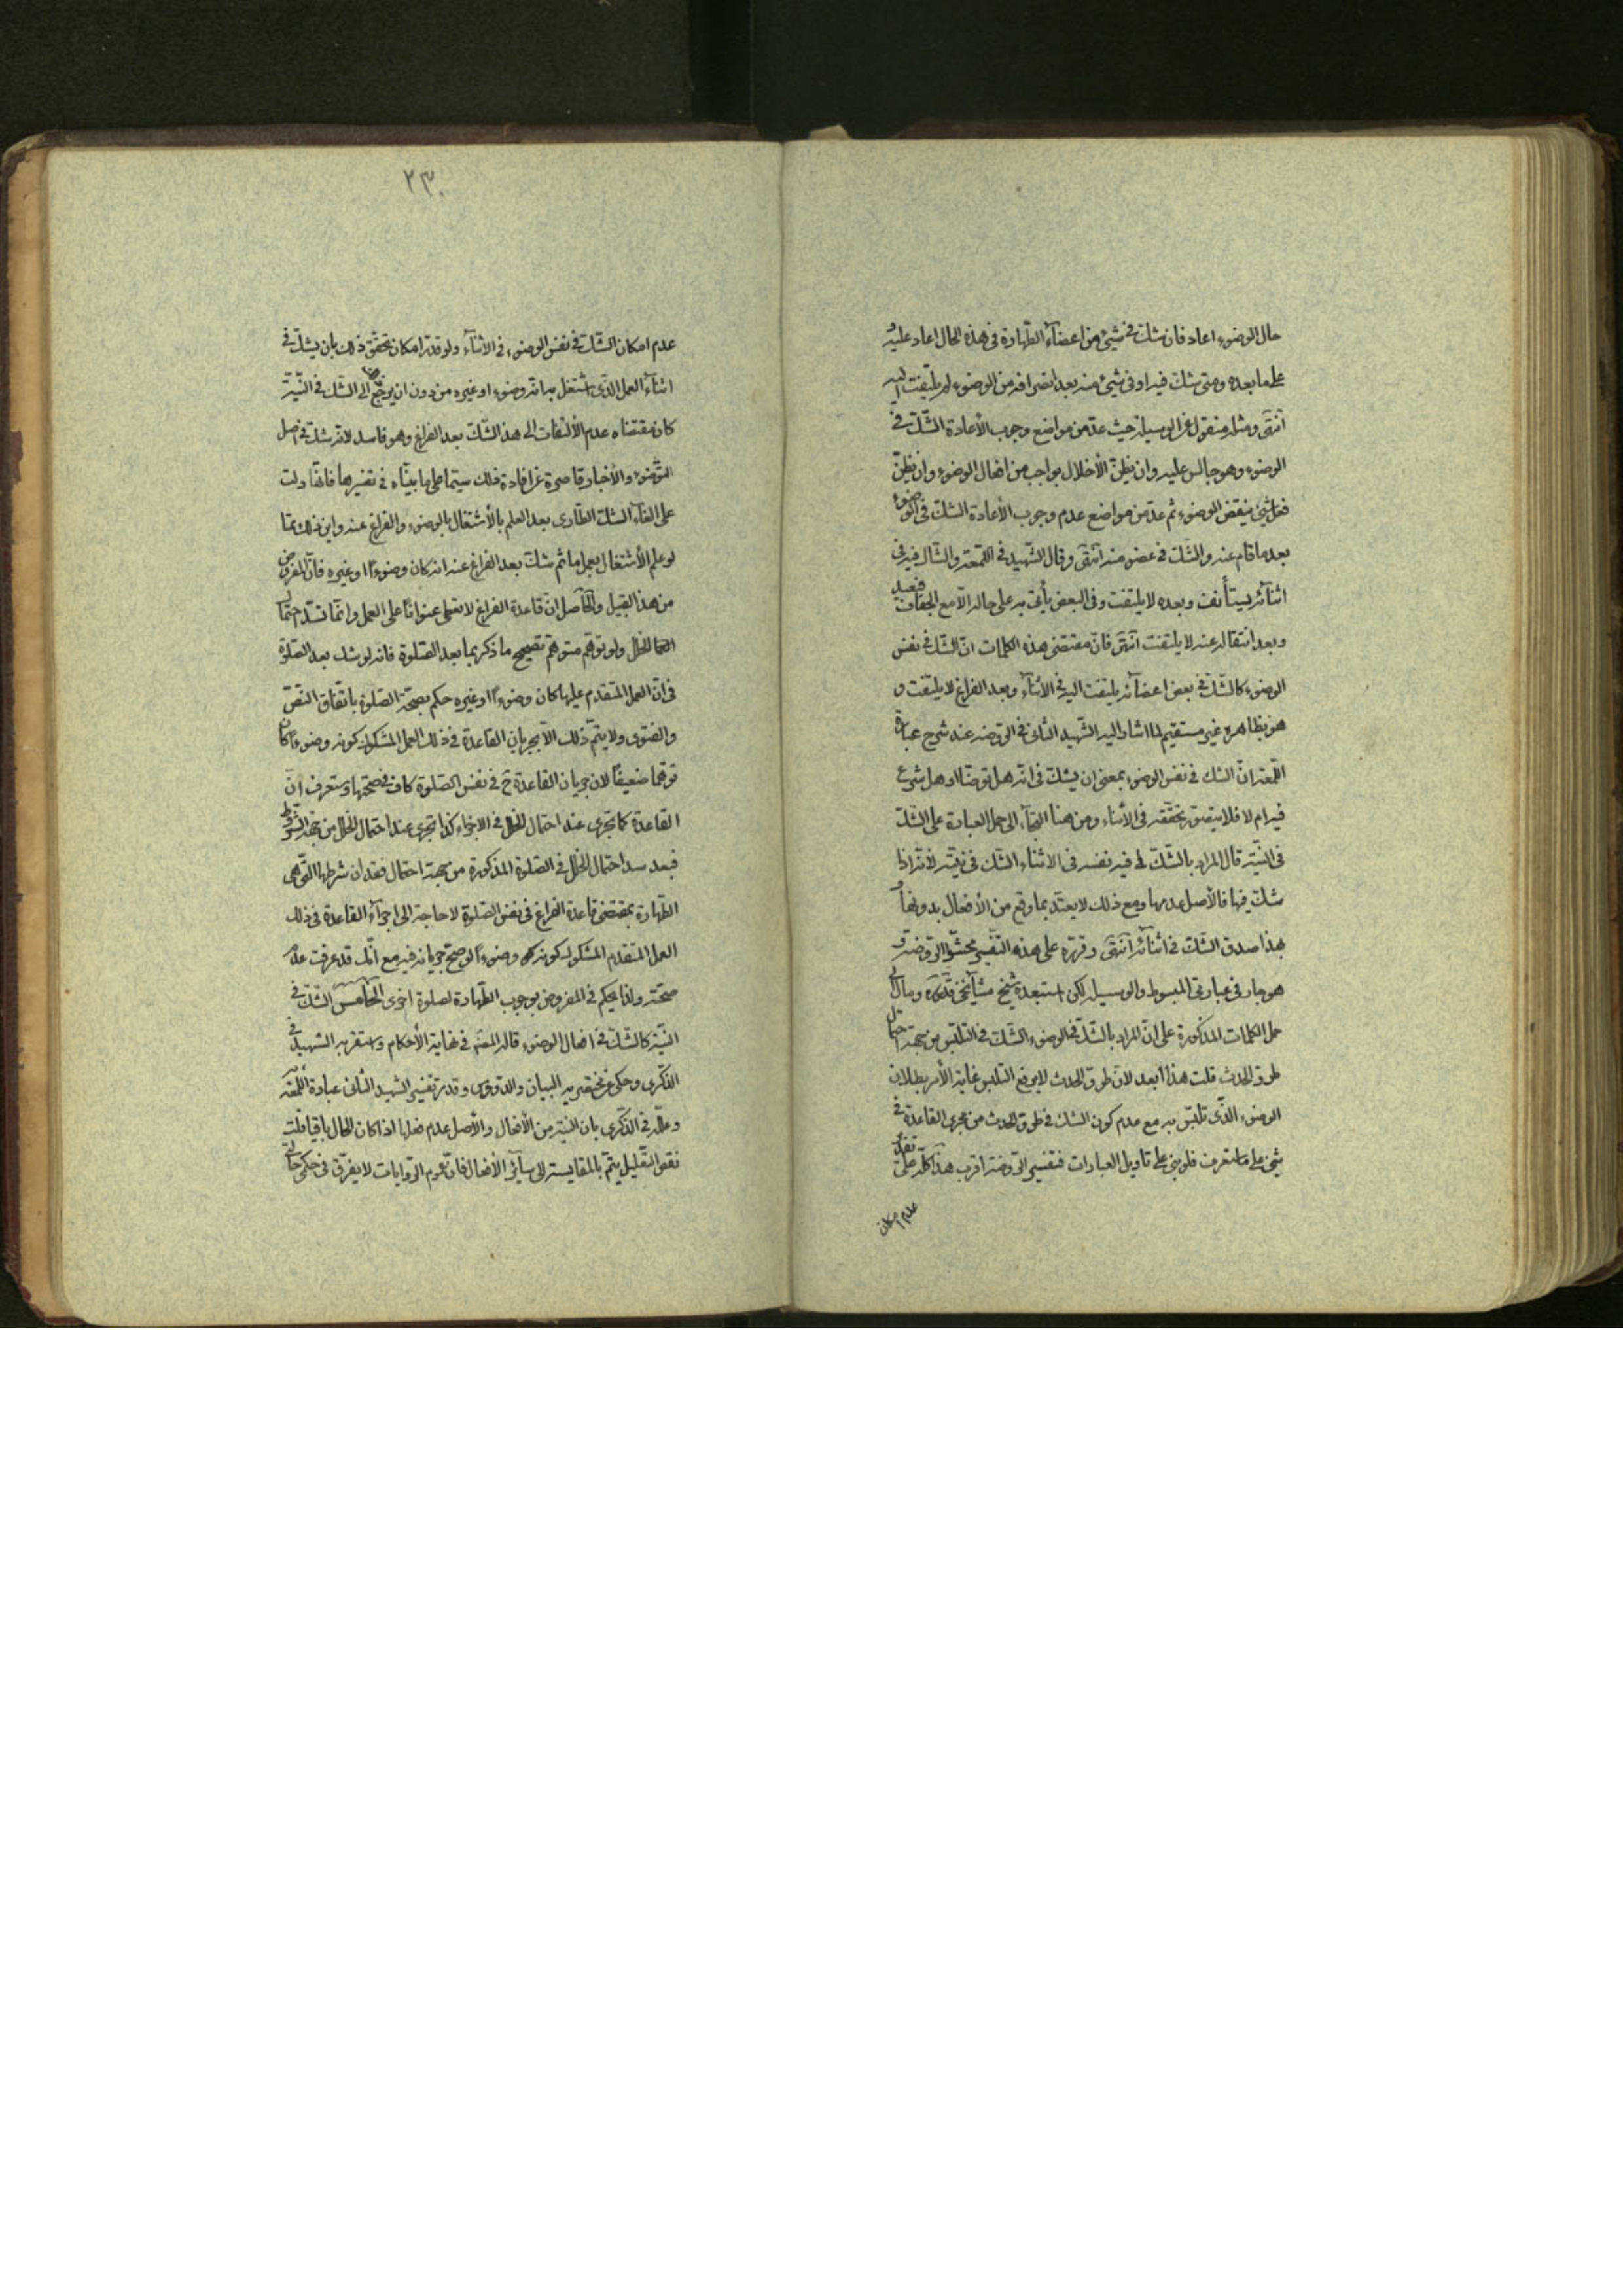 حال الوضوء اعاد فان شك في شيئ من اعضاء الطهارة في هذه الحال اعاد عليه و
على ما بعده ومتى شك فيه او في شيئ منه بعد انصرافه من الوضوء لم يلتفت اليه
انتهى ومثله منقول عن الوسيلة حيث عد من مواضع وجوب الأعادة الشك في
الوضوء وهو جالس عليه وان يظن الأخلال بواجب من افعال الوضوء وان يظن
فعل شيئ ينقض الوضوء ثم عد من مواضع عدم وجوب الأعادة الشك في الوضوء
بعد ما قام عنه والشك في عضو منه انتهى وقال الشهيد في اللمعة والشاك فيه في
اثنائه يستأنف وبعده لا يلتفت وفي البعض يأتي به على حاله الا مع الجفاف فيعيد
وبعد انتقاله عنه لا يلتفت انتهى فان مقتضى هذه الكلمات ان الشك في نفس
الوضوء كالشك في بعض اعضائه يلتفت اليه في الأثناء وبعد الفراغ لا يلتفت و
هو بظاهره غير مستقيم لما اشار اليه الشهيد الثاني في الروضه عند شرح عبارة
اللمعة ان الشك في نفس الوضوء بمعنى ان يشك في انه هل توضأ او هل شرع
فيه ام لا فلا يتصور تحققه في الأثناء ومن هنا التجأ الى حمل العبارة على الشك
في النية قال المراد بالشك فيه نفسه في الاثناء الشك في نيته لأنه اذا
شك فيها فالأصل عدمها ومع ذلك لا يعتد بما وقع من الأفعال بدونها و
بهذا صدق الشك في اثنائه انتهى وقرره على هذه التفسير محشوا الروضة و
هو جار في عبارتي المبسوط والوسيلة لكن استبعده شيخ مشايخنا قدس سره ومال الى
حمل الكلمات المذكورة على ان المراد بالشك في الوضوء الشك في التلبس من جهة احتمال
طرو الحدث قلت هذا ابعد لان طرو الحدث لا يرفع التلبس غاية الأمر بطلان
الوضوء الذي تلبس به مع عدم كون الشك في طرو الحدث من مجرى القاعدة في
شيئ على ما ستعرف فلو بنى على تاويل العبارات فتفسير الروضة اقرب هذا كله على تقدير
عدم امكان
٢٣٠
عدم امكان الشك في نفس الوضوء في الأثناء ولو قدر امكان تحقق ذلك بان يشك في
اثناء العمل الذي اشتغل به انه وضوء او غيره من دون ان يرجع الى الشك في النية
كان مقتضاه عدم الألتفات الى هذا الشك بعد الفراغ وهو فاسد لانه شك في اصل
التوضوء والأخبار قاصرة عن افادة ذلك سيما على ما بيناه في تفسيرها فانها دلت
على الغاء الشك الطاري بعد العلم بالأشتغال بالوضوء والفراغ عنه واين ذلك مما
لو علم الأشتغال بعمل ما ثم شك بعد الفراغ عنه انه كان وضوءا او غيره فان المفروض
من هذا القبيل والحاصل ان قاعدة الفراغ لا تعطى عنوانا على العمل وانما تسد احتمال
الخلل ولو توهم متوهم تصحيح ما ذكر بما بعد الصلوة فانه لو شك بعد الصلوة
في ان العمل المتقدم عليها كان وضوءا او غيره حكم بصحة الصلوة باتفاق النص
والفتوى ولا يتم ذلك الا بجريان القاعدة في ذلك العمل المشكوك كونه وضوءا كان
توهما ضعيفا لان جريان القاعدة ح في نفس الصلوة كاف في صحتها وستعرف ان
القاعدة كما تجري عند احتمال الخلل في الاجزاء كذا تجري عند احتمال الخلل من جهة الشروط
فبعد سد احتمال الخلل في الصلوة المذكورة من جهة احتمال فقدان شرطها التي هي
الطهارة بمقتضى قاعدة الفراغ في نفس الصلوة لا حاجة الى اجراء القاعدة في ذلك
العمل المتقدم المشكوك كونه وضوءا لو صح جريانه فيه مع انك قد عرفت عدم
صحته ولذا يحكم في المفروض بوجوب الطهارة لصلوة اخرى الخامس الشك في
النية كالشك في افعال الوضوء قاله المصنف في نهاية الأحكام واستقر به الشهيد في
الذكرى وحكى عن البيان والدروس وقد مر تفسير الشهيد الثاني عبارة اللمعة به
وعلله في الذكرى بان النية من الأفعال والأصل عدم فعلها اذا كان الحال باقيا قلت
نقض التعليل يتم بالمقايسة الى سائر الأفعال فان عموم الروايات لا يفرق في حكمي حالتي